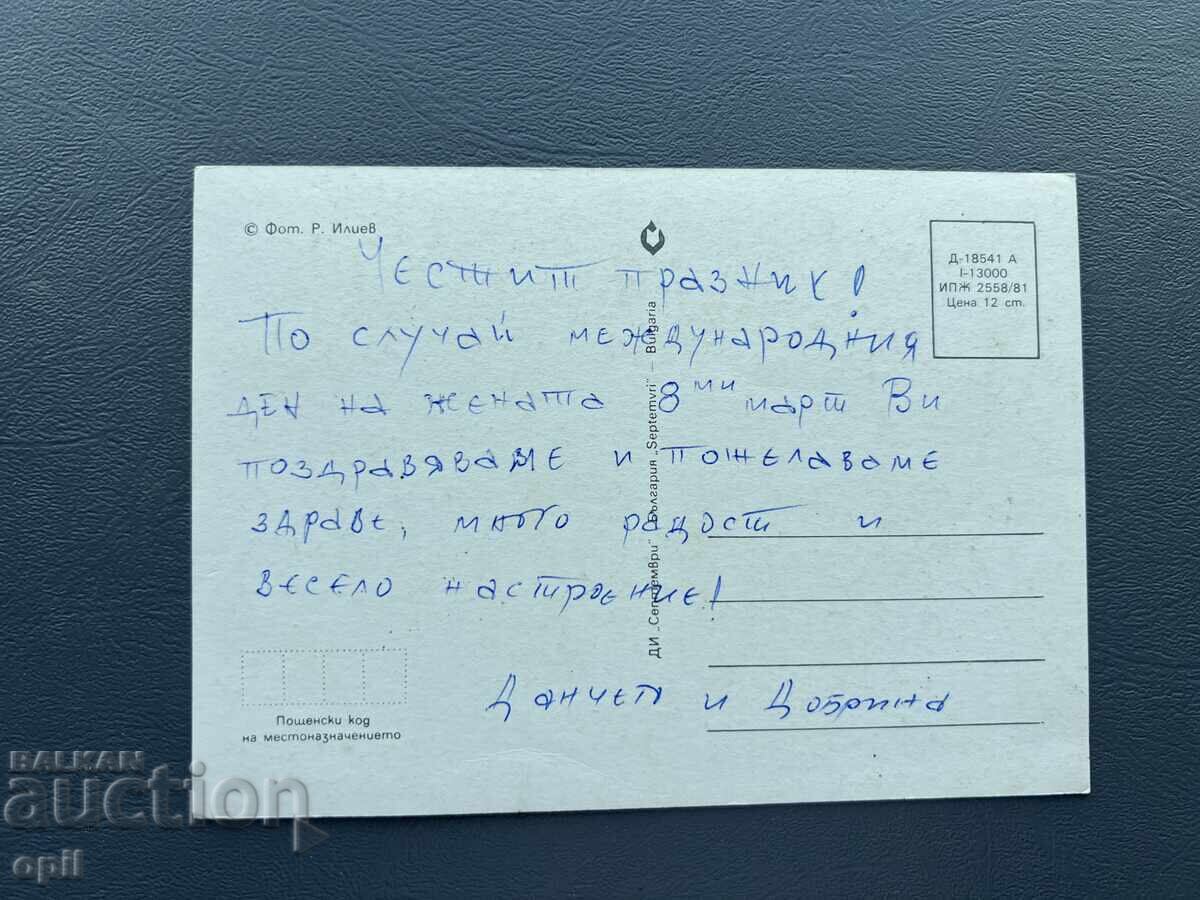 © Фот. Р. Илиев
Д-18541 А
I-13000
ИПЖ 2558/81
Цена 12 ст.
Честит празник!
По случай международния
ден на жената 8ми март Ви
поздравяваме и пожелаваме
здраве, много радост и
весело настроение!
и Добрина
ДИ „Септември" България „Septemvri" – Bulgaria
Пощенски код
на местоназначението
BALKAN
auction
opil